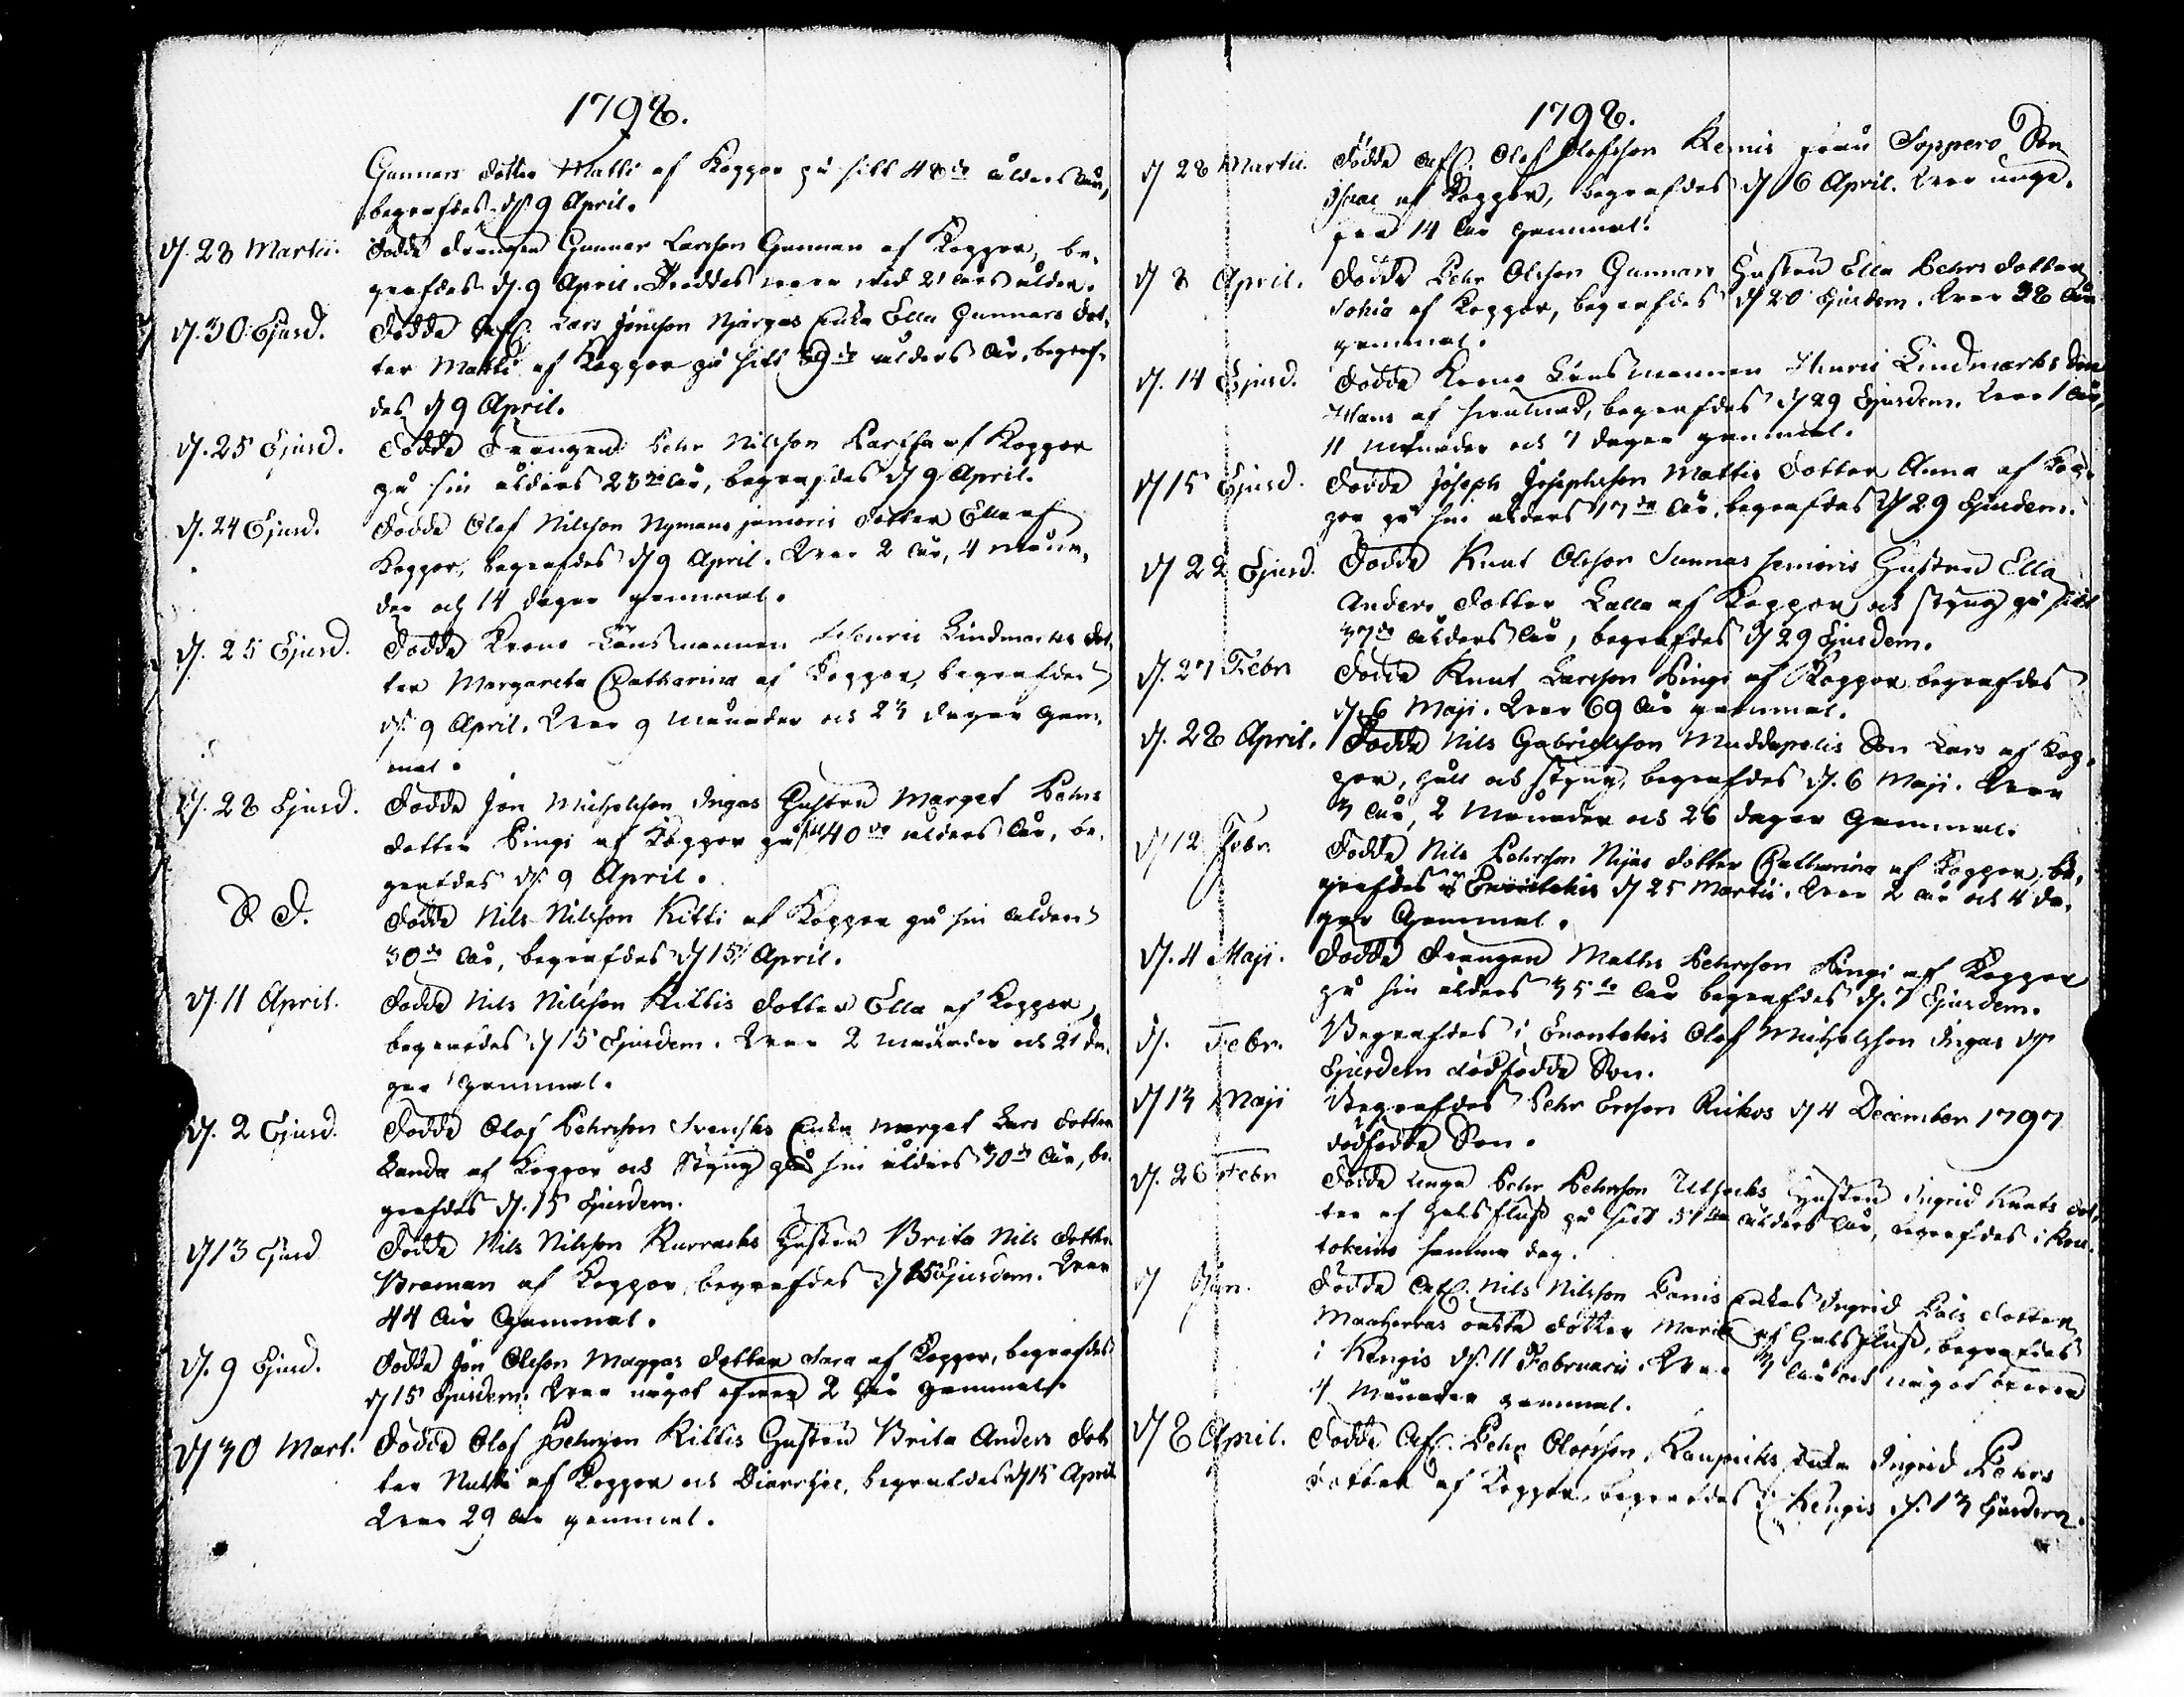 1798.
Gunnars dotter Matti af Koppor på sitt 48de ålders år,
begrafdes d. 9 April.
d. 28 Martii. Dödde Drängen Gunnar Larsson Gunnar af Koppor, be-
grafdes d. 9 April. Föddes  wid 21 års ålder.
d. 30 Ejusd. Dödde Afl. Lars Jönsson Njärgas Enka Ella Gunnars dot-
ter Matti af Koppor på sitt 39de ålders år, begraf-
des d 9 April.
d. 25 Ejusd. Dödde Drängen Pehr Nilsson Partsa af Koppor
på sin ålders 23de år, begrafdes d 9 April.
d. 24 Ejusd. Dödde Olof Nilsson Nymans junioris dotter Ella af
Koppor, begrafdes d 9 April. War 2 år, 4 måna-
der och 14 dagar gammal.
d. 25 Ejusd. Dödde Krono Länsmannen Henric Lindmarks dot-
ter Margareta Catharina af Koppor, begrafdes
d. 9 April. War 9 månader och 23 dagar gam-
mal.
d. 28 Ejusd. Dödde Jon Michelsson Ingas Hustru Marget Pehrs
dotter Pingi af Koppor på sitt 40de ålders år, be-
grafdes d. 9 April.
S. D. Dödde Nils Nilsson Kitti af Koppor på sin ålders
30de år, begrafdes d 15 April.
d. 11 April. Dödde Nils Nilsson Kittis dotter Ella af Koppor,
begrafdes d 15 Ejusdem. War 2 månader och 21 da-
gar gammal.
d. 2 Ejusd. Dödde Olof Pehrsson Svensks Enka Marget Lars dotter
Landa af Koppor och Styng på sin ålders 70de år, be-
grafdes d. 15 Ejusdem.
d 13 Ejusd Dödde Nils Nilsson Kurracks Hustru Brita Nils dotter
Broman af Koppor, begrafdes d 15 Ejusdem. War
44 år Gammal.
d. 9 Ejusd. Dödde Jon Olsson Maggas dotter Sara af Koppor, begrafdes
d 15 Ejusdem. War något öfwer 2 år gammal.
d 30 Mart. Dödde Olof Pehrsson Kittis Hustru Brita Anders dot-
ter Nutti af Koppor och Diarrhée, begrafdes d 15 April
War 29 år gammal.
1798.
d 28 Martii. Dödde Afl. Olof Olofsson Kemis från Soppero Son
Isaac af Koppor, begrafdes d 6 April. War unge-
fär 14 år gammal.
d 8 April. Dödde Pehr Olsson Gunnars Hustru Ella Pehrs dotter
Sohia af Koppor, begrafdes d 20 Ejusdem. War 38 år
gammal.
d. 14 Ejusd. Dödde Krono Länsmannen Henric Lindmarks Son
Hans af , begrafdes d 29 Ejusdem. War 1 år,
11 månader och 7 dagar gammal.
d 15 Ejusd. Dödde Joseph Josephsson Mattis dotter Anna af Kop-
por på sin ålders 17de år, begrafdes d 29 Ejusdem.
d 22 Ejusd. Dödde Knut Olsson Sunnas senioris Hustru Ella
Anders dotter Lalla af Koppor och styng på sitt
37de ålders år, begrafdes d 29 Ejusdem.
d. 27 Febr. Dödde Knut Larsson Pingi af Koppor begrafdes
d. 6 Maji. War 69 år gammal.
d. 28 April. Dödde Nils Gabrielsson Muddapolis Son Lars af Kop-
por, håll och styng, begrafdes d. 6 Maji. War
3 år, 2 månader och 26 dagar Gammal.
d 12 Febr. Dödde Nils Pehrsson Nijas dotter Catharina af Koppor, be-
grafdes i Enontekis d 25 Martii. War 2 år och 4 da-
gar Gammal.
d. 4 Maji. Dödde Drängen Maths Pehrsson Pingi af Koppor
på sin ålders 35te år begrafdes d. 7 Ejusdem.
d. Febr. Begrafdes i Enontekis Olof Michelsson Ingas d.
Ejusdem dödfödde Son.
d 13 Maji Begrafdes Pehr Ersson Rickos d 4 December 1797
dödfödde Son.
d. 26 Febr Dödde unga Pehr Pehrsson Utsecks Hustru Ingrid Knuts dot-
ter af halsfluss på sitt 51te ålders år, begrafdes i Kau-
tokeino samma dag.
d Jan. Dödde Afl. Nils Nilsson Panis Enkas Ingrid Påls dotter
Maaherras oäkta dotter Maria af halsfluss, begrafdes
i Kengis d. 11 Februarii. War 3 år och något öfwer
4 månader gammal.
d 8 April. Dödde Afl. Pehr Olofsson Kaupicks Enka Ingrid Pehrs
dotter af Koppor, begrafdes i Kengis d. 13 Ejusdem.